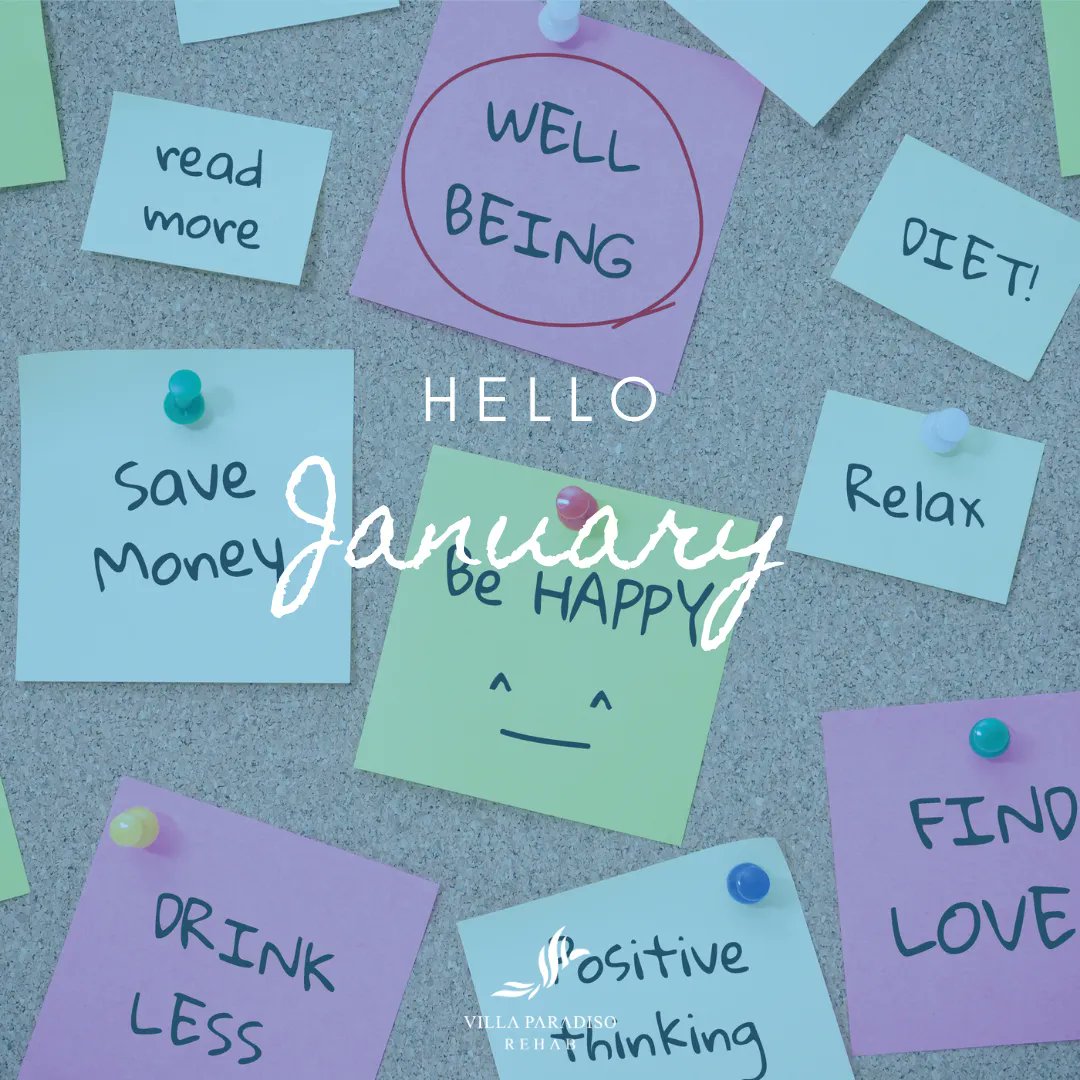 read
more
WELL
BEING
DIET!
HELLO
January
Save
Money
Relax
Be HAPPY
FIND
LOVE
DRINK
LESS
Positive
thinking
VILLA PARADISO
REHAB